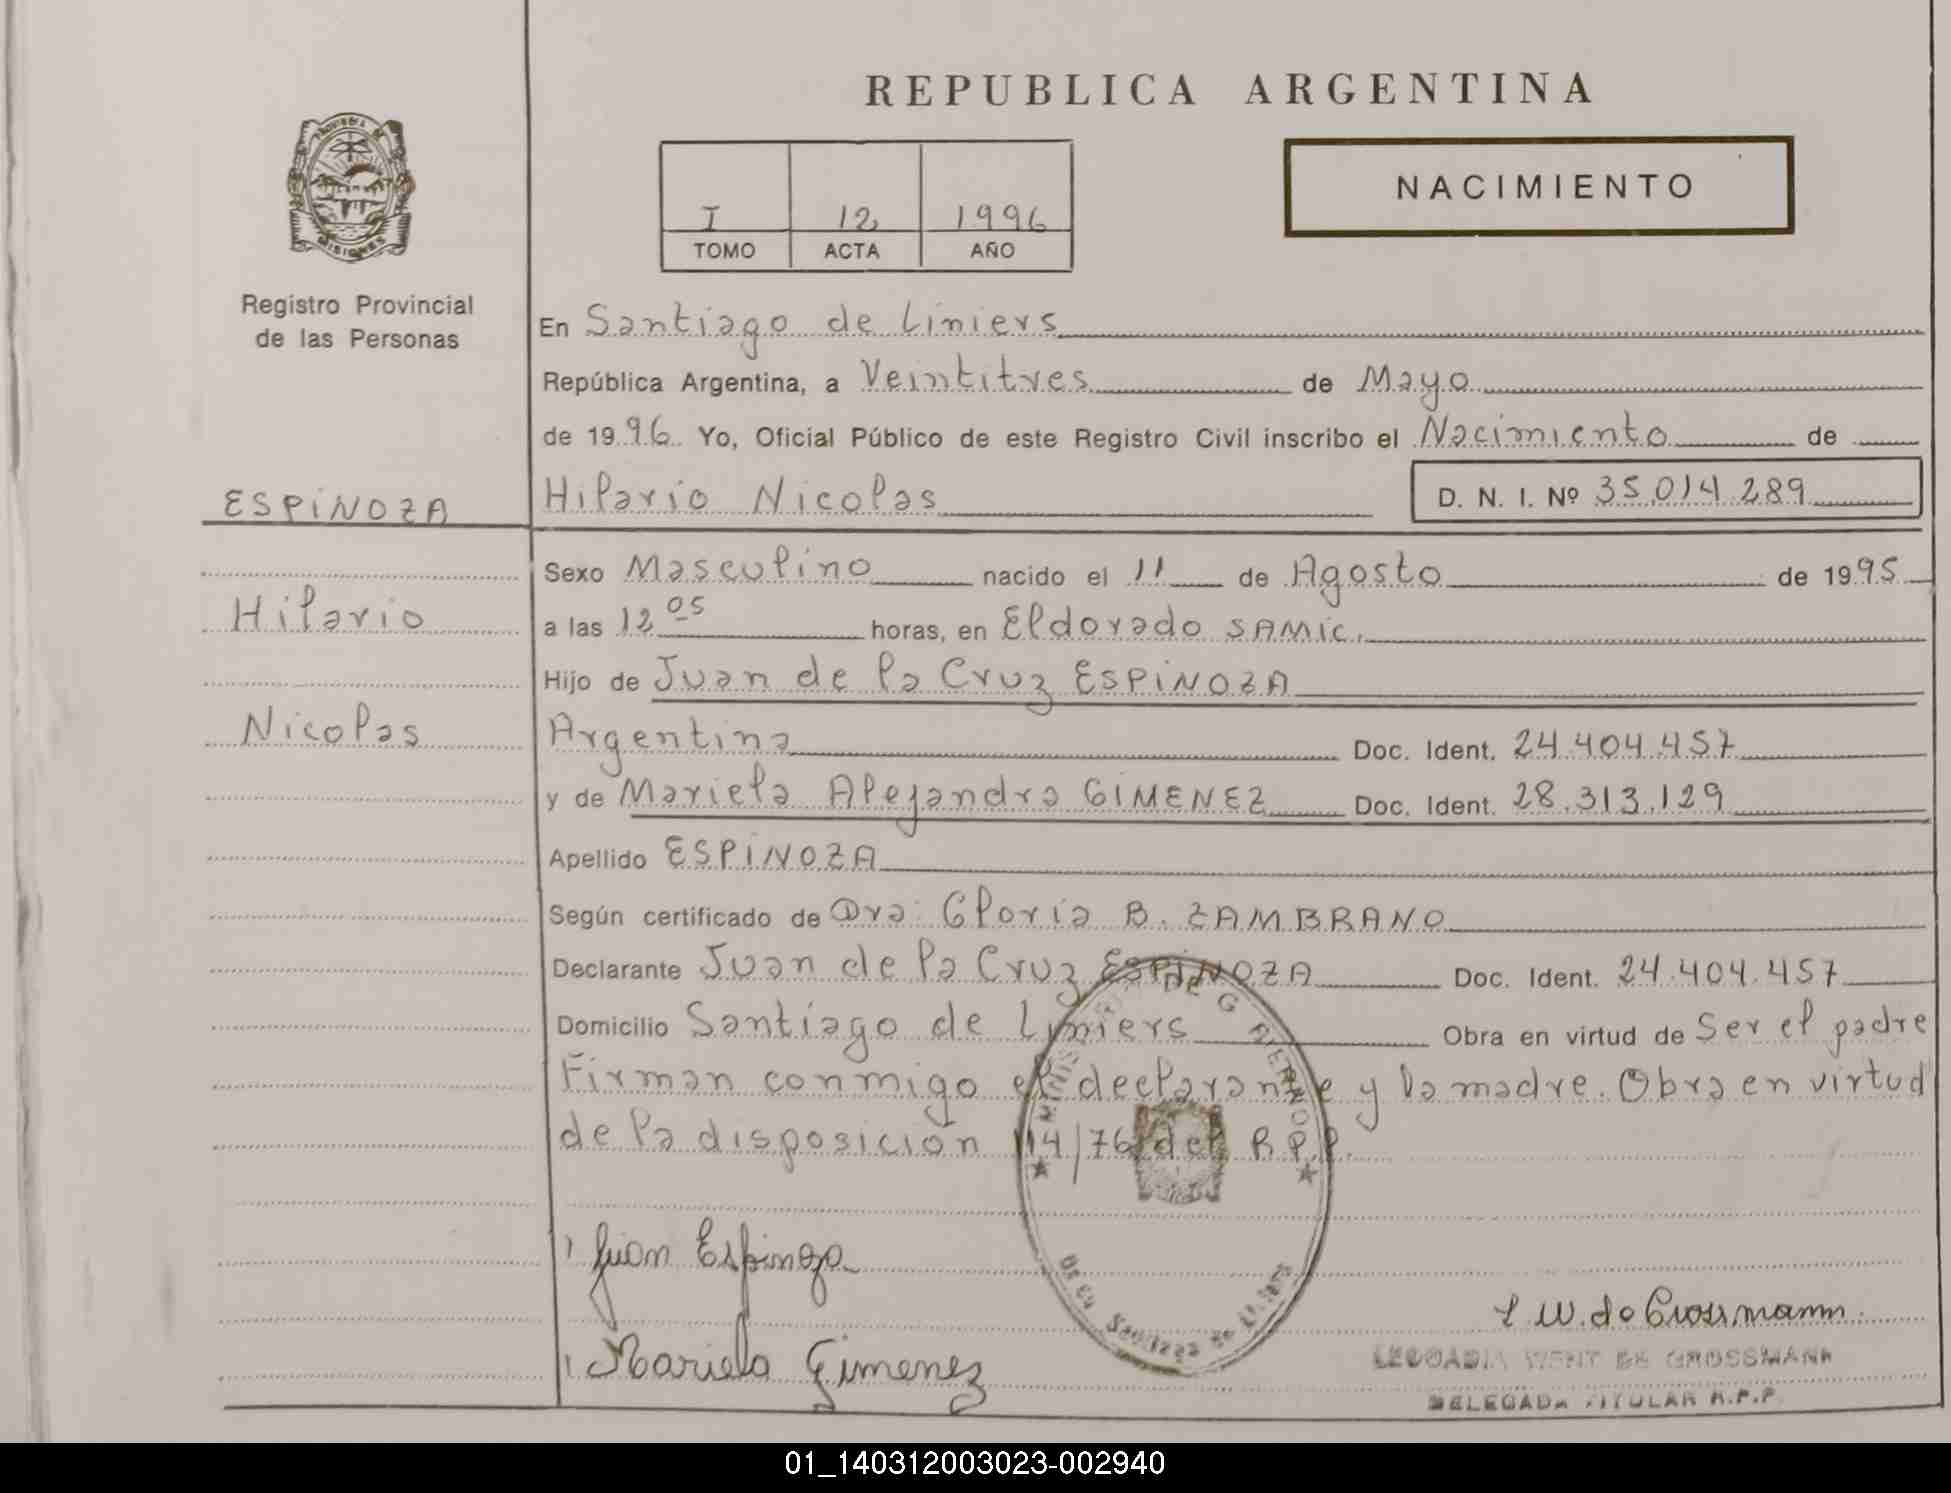 REPUBLICA ARGENTINA
PROVINCIA DE
MISIONES
Registro Provincial
de las Personas
I 12 1996
TOMO ACTA AÑO
NACIMIENTO
En Santiago de Liniers
República Argentina, a Veintitres de Mayo
de 1996 Yo, Oficial Público de este Registro Civil inscribo el Nacimiento de
ESPINOZA
Hilario Nicolas D. N. I. Nº 35.014.289
Sexo Masculino nacido el 11 de Agosto de 1995
Hilario
a las 12 05 horas, en Eldorado SAMIC.
Hijo de Juan de la Cruz ESPINOZA
Nicolas
Argentina Doc. Ident. 24.404.457
y de Mariela Alejandra GIMENEZ Doc. Ident. 28.313.129
Apellido ESPINOZA
Según certificado de Dra. Gloria B. ZAMBRANO
Declarante Juan de la Cruz ESPINOZA Doc. Ident. 24.404.457
Domicilio Santiago de Liniers Obra en virtud de Ser el padre
Firman conmigo el declarante y la madre. Obra en virtud
de la disposicion 114/76 del R.P.P.
MINISTERIO DE GOBIERNO
Santiago de Liniers
Juan Espinoza
Mariela Gimenez
L W. de Grossmann.
LEOCADIA WENT DE GROSSMANN
DELEGADA TITULAR R.P.P.
01_140312003023-002940